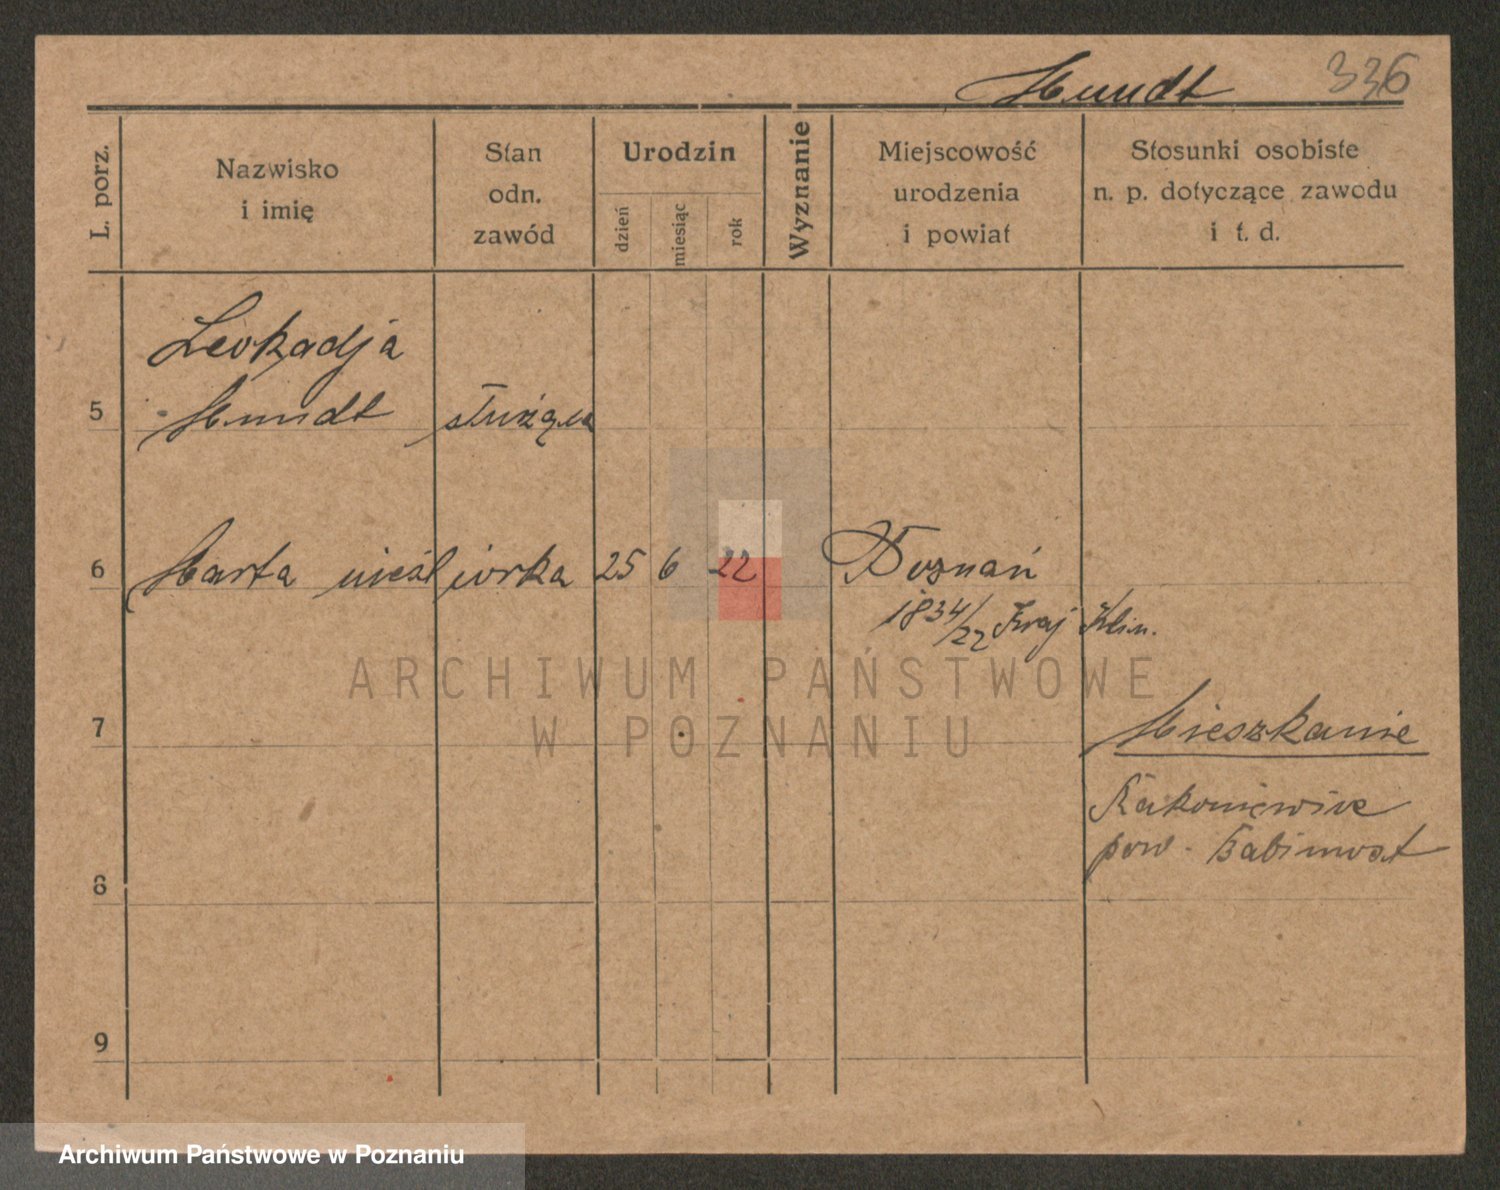 Mundt 336
L. porz.
Nazwisko
i imię
Stan
odn.
zawód
Urodzin
dzień
miesiąc
rok
Wyznanie
Miejscowość
urodzenia
i powiat
Stosunki osobiste
n. p. dotyczące zawodu
i t. d.
Leokadja
5 Mundt służąca
6 Marta nieśl córka 25 6 22 Poznań
1834/22 Kraj Klin.
ARCHIWUM PAŃSTWOWE
W POZNANIU
7 Mieszkanie
Rakoniewice
pow. Babimost
8
9
Archiwum Państwowe w Poznaniu